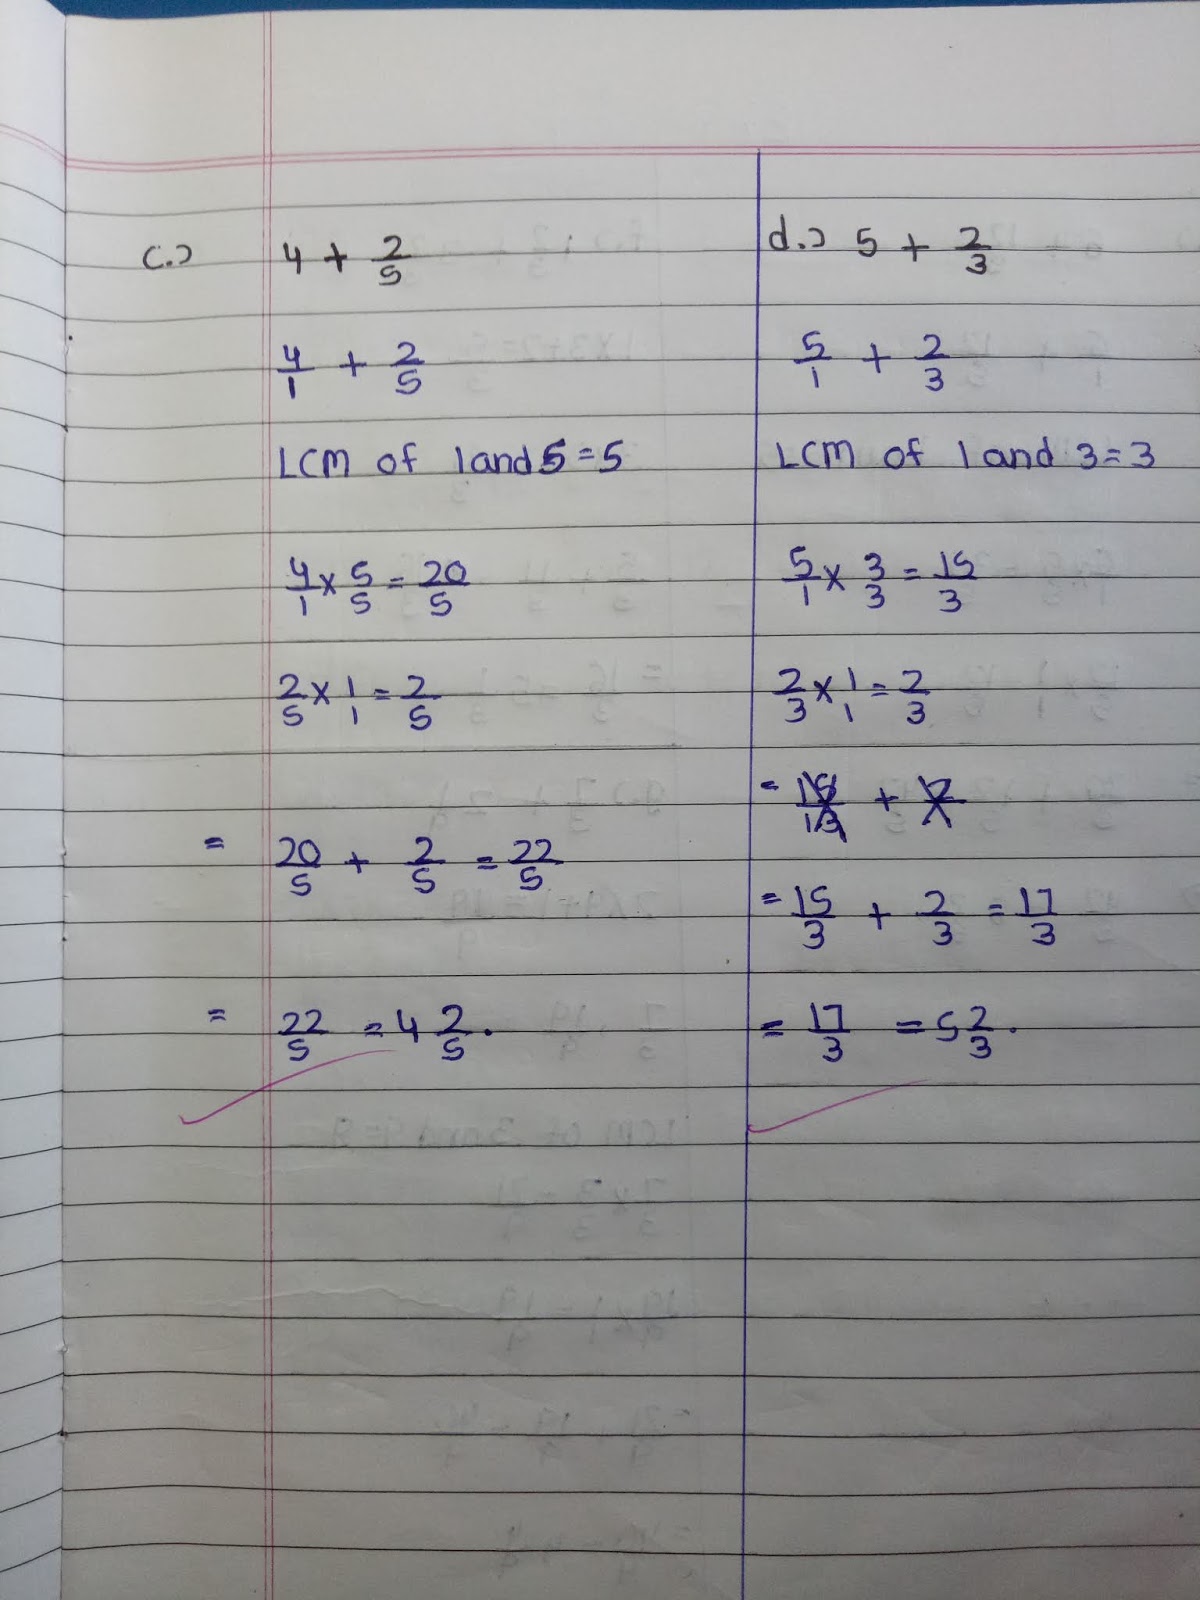 c.) 4 + 2/5
4/1 + 2/5
LCM of 1 and 5 = 5
4/1 × 5/5 = 20/5
2/5 × 1/1 = 2/5
= 20/5 + 2/5 = 22/5
= 22/5 = 4 2/5.
d.) 5 + 2/3
5/1 + 2/3
LCM of 1 and 3 = 3
5/1 × 3/3 = 15/3
2/3 × 1/1 = 2/3
= +
= 15/3 + 2/3 = 17/3
= 17/3 = 5 2/3.